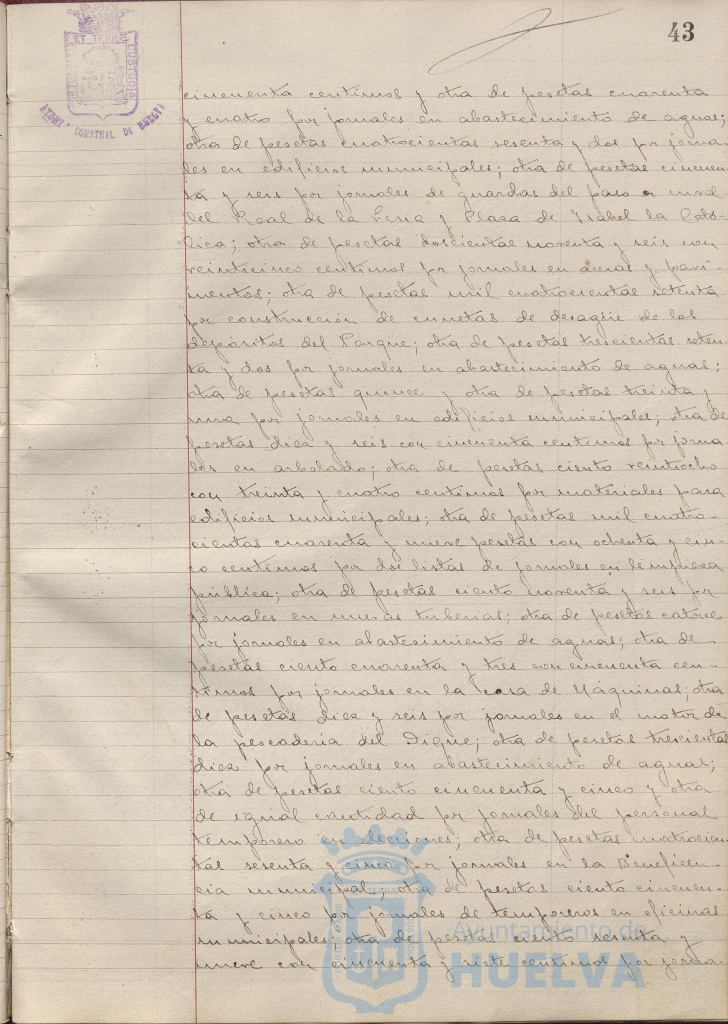 43
PORTUS MARIS ET TERRE CUSTODIA
AYUNT. CONSTNAL DE HUELVA
cincuenta centimos y otra de pesetas cuarenta
y cuatro por jornales en abastecimiento de aguas;
otra de pesetas cuatrocientas sesenta y dos por jorna-
les en edificios municipales; otra de pesetas cincuen-
ta y seis por jornales de guardas del paso a nivel
del Real de la Feria y Plaza de Isabel la Cató-
lica; otra de pesetas doscientas noventa y seis con
veinticinco centimos por jornales en aceras y pavi-
mentos; otra de pesetas mil cuatrocientas setenta
por construcción de cunetas de desagüe de los
depósitos del Parque; otra de pesetas trescientas seten-
ta y dos por jornales en abastecimiento de aguas;
otra de pesetas quince y otra de pesetas treinta y
una por jornales en edificios municipales; otra de
pesetas diez y seis con cincuenta centimos por jorna
les en arbolado; otra de pesetas ciento veintiocho
con treinta y cuatro centimos por materiales para
edificios municipales; otra de pesetas mil cuatro-
cientas cuarenta y nueve pesetas con ochenta y cin-
co centimos por dos listas de jornales en limpieza
pública; otra de pesetas ciento noventa y seis por
jornales en nuevas tuberias; otra de pesetas catorce
por jornales en abastecimiento de aguas; otra de
pesetas ciento cuarenta y tres con cincuenta cen-
timos por jornales en la casa de Máquinas; otra
de pesetas diez y seis por jornales en el motor de
la pescadería del Dique; otra de pesetas trescientas
diez por jornales en abastecimiento de aguas;
otra de pesetas ciento cincuenta y cinco y otra
de igual cantidad por jornales del personal
temporero en elecciones; otra de pesetas cuatrocien-
tas sesenta y cinco por jornales en la Beneficen-
cia municipal; otra de pesetas ciento cincuen-
ta y cinco por jornales de temporeros en oficinas
municipales; otra de pesetas ciento sesenta y
nueve con cincuenta y siete centimos por jorna-
Ayuntamiento de
HUELVA